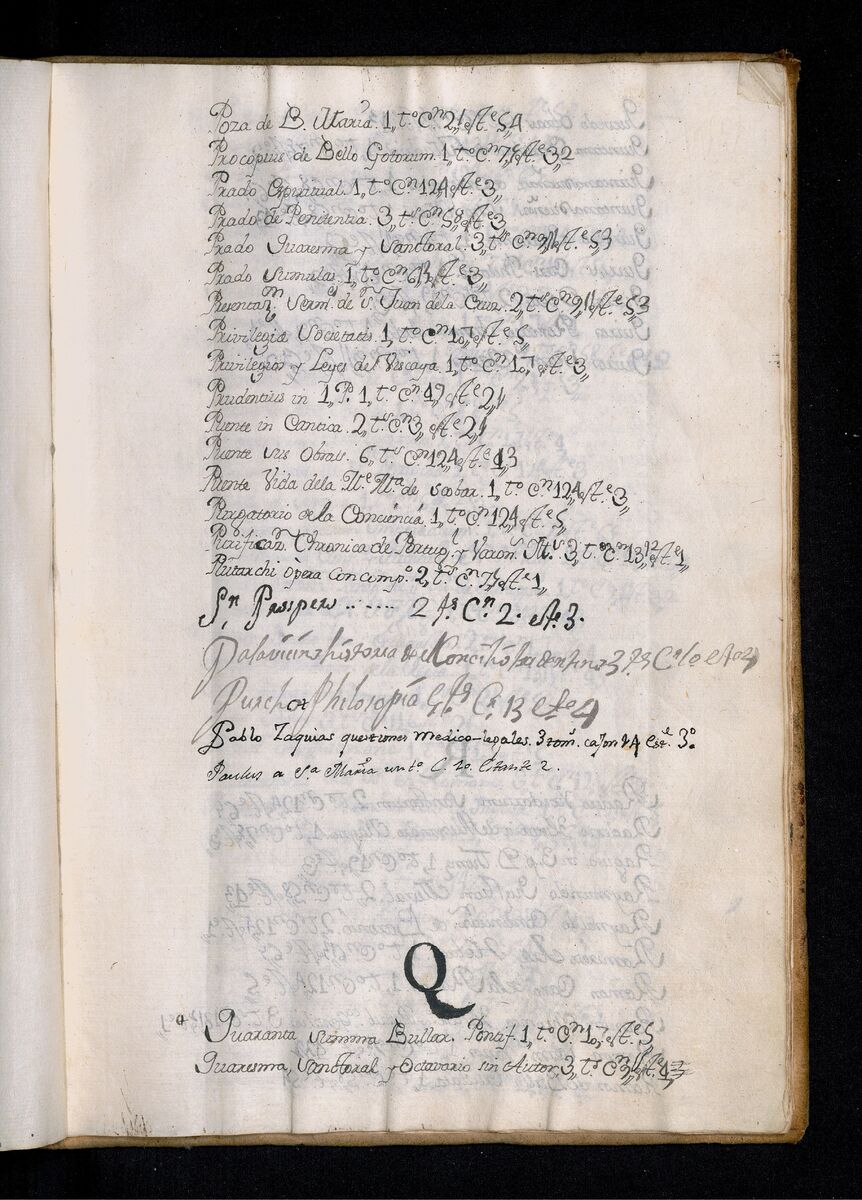 Poza de B. Maria. 1,, t.º C.ⁿ 2,, est.ᵉ 5,, 4
Procopius de Bello Gotorum. 1,, t.º C.ⁿ 7,, est.ᵉ 3,, 2
Prado Espiritual. 1,, t.º C.ⁿ 12,, 4 est.ᵉ 3,,
Prado de Penitentia. 3,, t.ˢ C.ⁿ 5,, 8,, est.ᵉ 3
Prado Quaresma y Sanctoral. 3,, t.ˢ C.ⁿ est.ᵉ 5,, 3
Prado Sumulas. 1,, t.º C.ⁿ 6,, est.ᵉ 3,,
Presentaz.ⁿ Serm.ˢ de S.ⁿ Juan dela Cruz. 2,, t.ˢ C.ⁿ 9,, 11,, est.ᵉ 5,, 3
Privilegia Societatis. 1,, t.º C.ⁿ 10,, 7 est.ᵉ 5,,
Privilegios y Leyes del Viscaya. 1,, t.º C.ⁿ 10,, 7 est.ᵉ 3,,
Prudentius in 1,, P. 1,, t.º C.ⁿ 4,, 7 est.ᵉ 2,, 1
Puente in Cantica. 2,, t.ˢ C.ⁿ 3,, est.ᵉ 2,, 1
Puente sus Obras. 6,, t.ˢ C.ⁿ 12,, 4 est.ᵉ 4,, 3
Puente Vida dela M.ᵉ M.ª de Scobar. 1,, t.º C.ⁿ 12,, 4 est.ᵉ 3,,
Purgatorio de la Conciencia. 1,, t.º C.ⁿ 12,, 4 est.ᵉ 5,,
Purifican. Chronica de Portug.ˡ y Varon.ˢ Ill.ˢ 3,, t.ˢ C.ⁿ 13,, 12 est.ᵉ 1,,
Plutarchi opera con comp.º 2,, t.ˢ C.ⁿ 7,, est.ᵉ 1,,
S.ⁿ Prospero ...... 2 t.ˢ C.ⁿ 2. est.ᵉ 3.
Palavicino historia de el Concilio tridentino 3 t.ˢ C.ⁿ 10 est.ᵉ 4
Purchot Philosopía 5 t.ˢ C.ⁿ 13 est.ᵉ 4
Pablo Zaquias questiones medico-legales. 3 tom.ˢ cajon 14 Est.ᵉ 3.º
Paulus a S.ª Maria un t.º C. 10. Estante 2.
Q
Quaranta summa Bullar. Pontif. 1,, t.º C.ⁿ 10,, 7 est.ᵉ 5
Quaresma, Sanctoral y Octavario sin Autor 3,, t.ˢ C.ⁿ 3,, 11 est.ᵉ 4,, 3